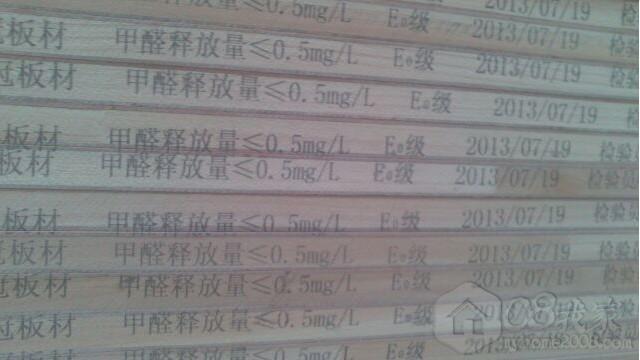 甲醛释放量≤0.5mg/L E0级 2013/07/19
板材 甲醛释放量≤0.5mg/L E0级 2013/07/19 检
冠板材 甲醛释放量≤0.5mg/L E0级 2013/07/19
甲醛释放量≤0.5mg/L E0级 2013/07/19 检验
板材 甲醛释放量≤0.5mg/L E0级 2013/07/19 检验员
板材 甲醛释放量≤0.5mg/L E0级 2013/07/19 检验员
板材 甲醛释放量≤0.5mg/L E0级 2013/07/19 检验
冠板材 甲醛释放量≤0.5mg/L E0级 2013/07/19 检验
冠板材 甲醛释放量≤0.5mg/L E0级 2013/07/19 检验
板材 甲醛释放量≤0.5mg/L E0级 2013/07/19
甲醛释放量≤0.5mg/L E0级
myhome2008.com